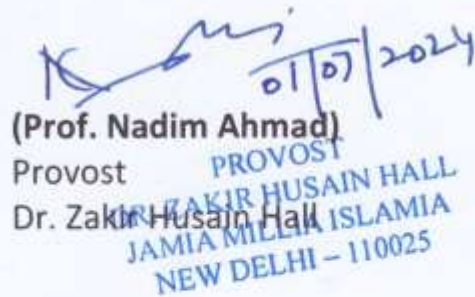 01/07/2024
(Prof. Nadim Ahmad)
Provost
Dr. Zakir Husain Hall
PROVOST
DR. ZAKIR HUSAIN HALL
JAMIA MILLIA ISLAMIA
NEW DELHI – 110025